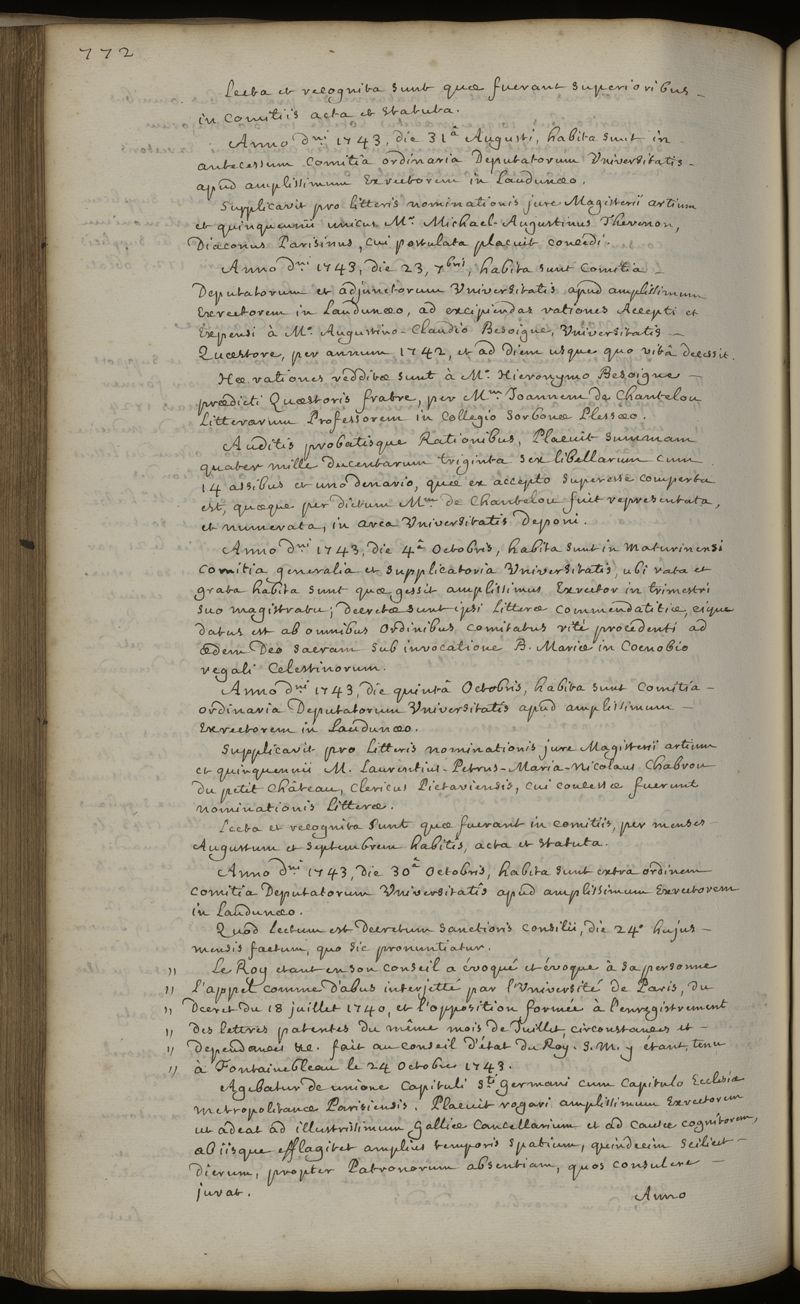 772
Lecta et recognita sunt quæ fuerant superioribus
in Comitiis acta et statuta.
Anno dni 1743, die 31â Augusti, habita sunt in
antecessum Comitia ordinaria Deputatorum Universitatis
apud amplissimum Exrectorem in Laudunæo.
Supplicavit pro litteris nominationis jure Magisterii artium
et quinquennii unicus Mr. Michael-Augustinus Thevenon,
Diaconus Parisinus, cui postulata placuit concedi.
Anno dni 1743, die 23, 7bris, habita sunt Comitia
Deputatorum et adjunctorum Universitatis apud amplissimum
Exrectorem in Laudunæo, ad excipiendas rationes Accepti et
Expensi à Mo. Augustino-Claudio Besoigne, Universitatis
Quæstore, per annum 1742, et ad diem usque quo vitâ decessit.
Hæ rationes redditæ sunt à Mo. Hieronymo Besoigne
prædicti Quæstoris fratre, per Mum. Joannem de Chantelou
Litterarum Professorem in Collegio Sorbonæ Plessæo.
Auditis probatisque Rationibus, Placuit summam
quater mille ducentarum triginta sex libellarum cum
14 assibus et uno denario, quæ ex accepto superesse comperta
est, quæque per dictum Mum de Chantelou fuit repræsentata,
et numerata, in arca Universitatis deponi.
Anno dni 1743, die 4â Octobris, habita sunt in Maturinensi
Comitia generalia et supplicatoria Universitatis, ubi rata et
grata habita sunt quæ gessit amplissimus Exrector in trimestri
suo magistratu; decretæ sunt ipsi Litteræ commendatitiæ, eique
datus est ab omnibus Ordinibus comitatus ritè procedenti ad
ædem Deo sacram sub invocatione B. Mariæ in Coenobio
regali Celestinorum.
Anno dni 1743, die quintâ Octobris, habita sunt Comitia
ordinaria Deputatorum Universitatis apud amplissimum
Exrectorem in Laudunæo.
Supplicavit pro Litteris nominationis jure Magisterii artium
et quinquennii M. Laurentius-Petrus-Maria-Nicolaus Chabrou
du petit Château, Clericus Pictaviensis, cui concessæ fuerunt
nominationis Litteræ.
Lecta et recognita sunt quæ fuerant in comitiis, per menses
Augustum et Septembrem habitis, acta et statuta.
Anno dni 1743, die 30â Octobris, habita sunt extra ordinem
Comitia Deputatorum Universitatis apud amplissimum Exrectorem
in Laudunæo.
Quod lectum est Decretum Sanctioris Consilii, die 24o hujus
mensis factum, quo sic pronuntiatur.
" Le Roy etant en son Conseil a évoqué et évoque à sa personne
" l'appel comme d'abus interjetté par l'Université de Paris, du
" Decret du 18 juillet 1740, et l'opposition formée à l'enregistrement
" des lettres patentes du même mois de Juillet, circonstances et
" dependances &c. fait au conseil d'état du Roy. S.M. y étant, tenu
" à Fontainebleau le 24 Octobre 1743.
Agebatur de unione Capituli Sti Germani cum Capitulo Ecclesiæ
metropolitanæ Parisiensis. Placuit rogari amplissimum Exrectorem
ut adeat ad illustrissimum Galliæ Cancellarium et ad causæ cognitorem,
ab iisque efflagitet amplius temporis spatium, quindecim scilicet
dierum, propter Patronorum absentiam, quos consulere
juvat.
Anno